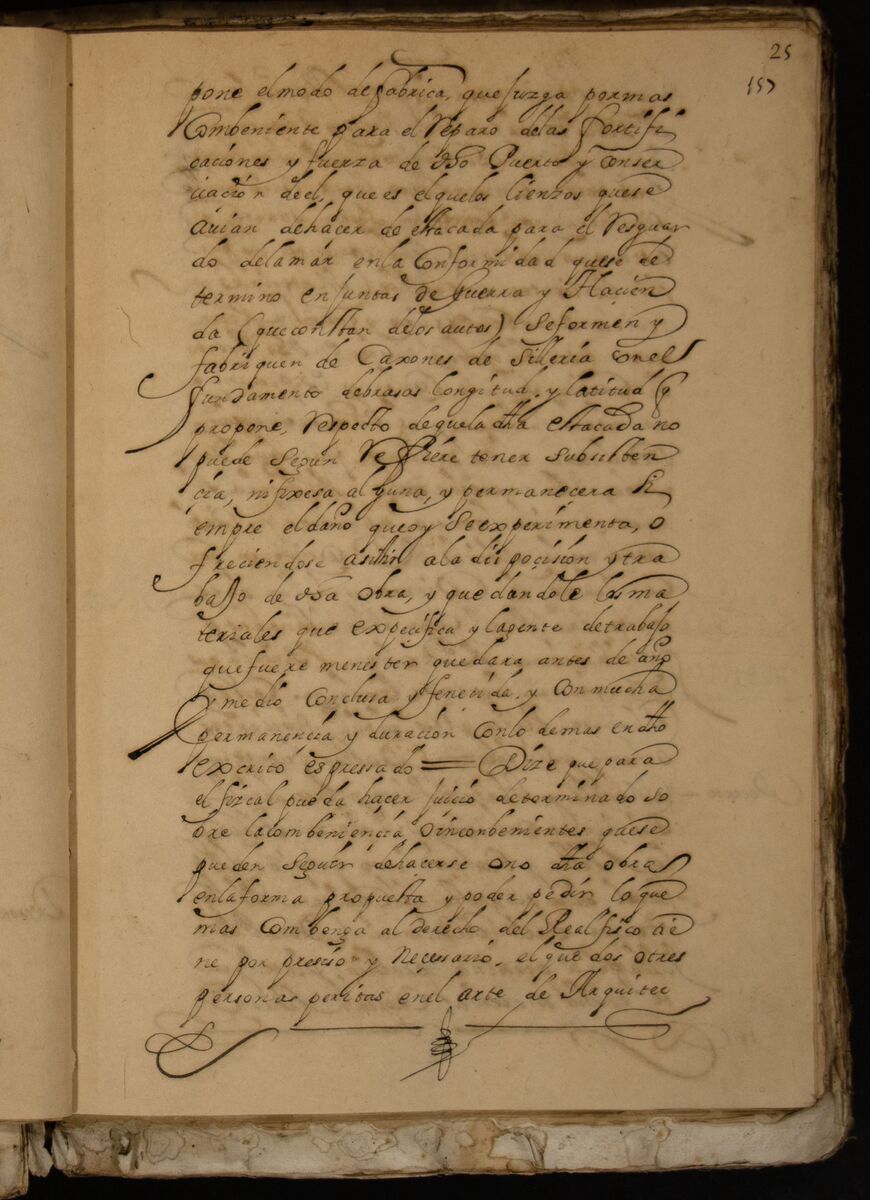 25
157
pone el modo de fabrica, que juzga por mas
Combeniente para el Reparo delas fortifi
caciones y fuerza de dho Puerto y conser
uación deel, que es el quelos lienzos que se
auian dehacer de estacada para el Resguar
do delamár enla Conformidad quese de
termino en juntas de guerra y Hacien
da (que constan delos autos) Seformen y
fabriquen de Caxones de Silleria con el
fundamento debrasas longitud, y latitud q
propone, Respecto deque la dha estacada no
puede Segun Refiere tener subsisten
cia, nifixesa alguna, y permanecera Si
empre el daño que oy Se experimenta, o
freciendose asistir ala dispocision y tra
bajo de dha obra, y que dandole los ma
teriales que expecifica y lagente detrabajo
que fuere menester quedara antes de año
y medio Conclusa y fenecida, y con mucha
permanencia y duración Conlo demas en dho
excrito espressado = Dize que para
el fizcal pueda hacer juicio determinado so
bre la combeniencia, o inconbenientes que se
pueden Seguir dehacerse o no dha obra
enlaforma propuesta y poder pedir lo que
mas Combenga al derecho del Real fisco tie
ne por presiso y Necessario, el que dos otres
personas peritas en el arte de Arquitec